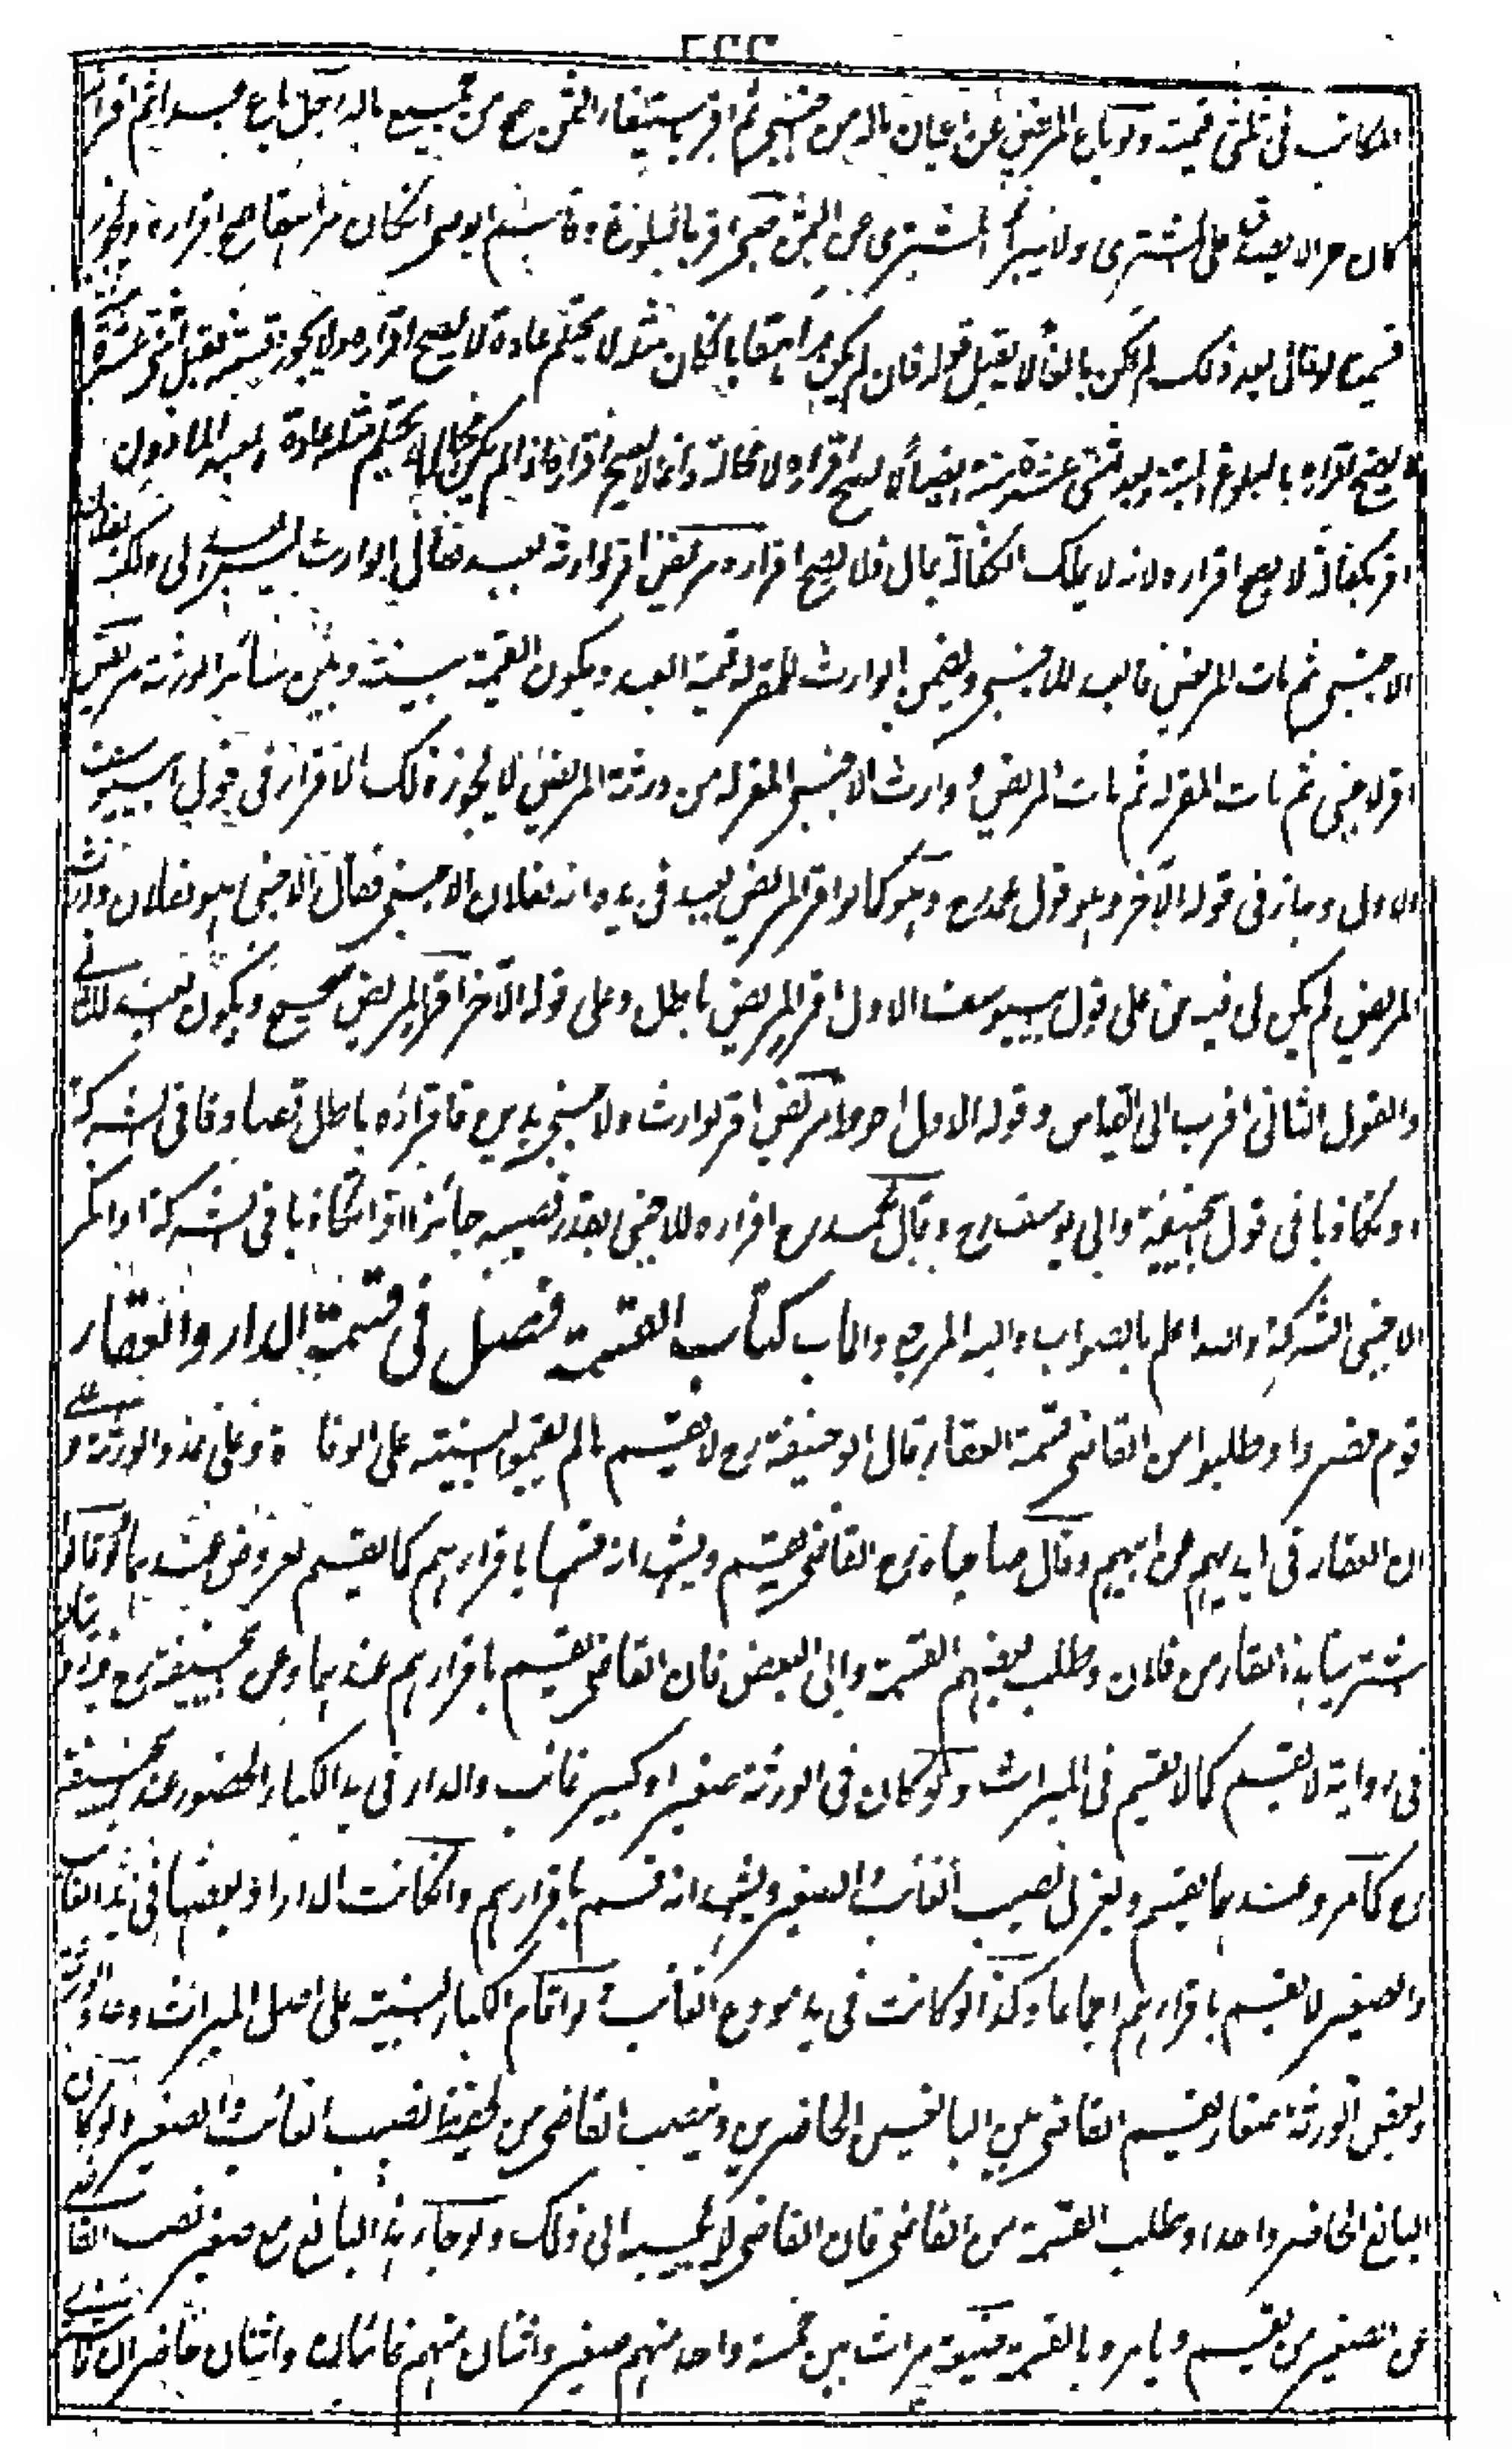 المكاتب فى ثلثى قيمته ولو باع المريض عن اعيان ماله من اجنبى ثم اقر باستيفاء الثمن صح من جميع ماله رجل باع عبدا ثم اقر انه
كان حرا لا يصدق على المشترى ولا يبرأ المشترى عن الثمن صبى اقر بالبلوغ وقاسم الوصى ان كان مراهقا صح اقراره وتجوز
قسمته ولو قال بعد ذلك لم اكن بالغا لا يقبل قوله فان لم يكن مراهقا بان كان مثله لا يحتلم عادة لا يصح اقراره ولا يجوز قسمته فقبل اثنى عشرة سنة
لا يصح اقراره بالبلوغ البتة وبعد اثنى عشرة سنة ايضا لا يصح اقراره لا محالة وانما لا يصح اقراره اذا لم يكن بحال يحتلم مثله عادة العبد الماذون
اقر بكفالة لا يصح اقراره لانه لا يملك الكفالة بمال فلا يصح اقراره مريض اقر لوارثه بعبد فقال الوارث ليس العبد لى ولكنه لفلان
الاجنبى ثم مات المريض فالعبد للاجنبى ويضمن الوارث المقر له قيمة العبد ويكون القيمة بينه وبين سائر الورثة مريض
اقر لاجنبى ثم مات المقر له ثم مات المريض و وارث الاجنبى المقر له من ورثة المريض لا يجوز ذلك الاقرار فى قول ابى يوسف
الاول وجاز فى قوله الآخر وهو قول محمد رح وهو كما لو اقر المريض بعبد فى يده انه لفلان الاجنبى فقال الاجنبى هو لفلان وارث
المريض لم يكن لى فيه حق على قول ابى يوسف الاول اقرار المريض باطل وعلى قوله الآخر اقرار المريض صحيح ويكون العبد للثانى
والقول الثانى اقرب الى القياس وقوله الاول احوط مريض اقر لوارث ولاجنبى بدين فاقراره باطل تصادقا فى الشركة
او تكاذبا فى قول ابى حنيفة وابى يوسف رح وقال محمد رح اقراره للاجنبى بقدر نصيبه جائز اذا تكاذبا فى الشركة او انكر
الاجنبى الشركة والله اعلم بالصواب واليه المرجع والماب كتاب القسمة فصل فى قسمة الدار والعقار
قوم حضروا وطلبوا من القاضى قسمة العقار قال ابو حنيفة رح لا يقسم ما لم يقيموا البينة على الوفاة وعلى عدد الورثة وعلى
ان العقار فى ايديهم عن ابيهم وقال صاحباه رح القاضى يقسم ويشهد انه قسمها باقرارهم كما يقسم العروض عندهما ولو قالوا
اشترينا هذا العقار من فلان وطلب بعضهم القسمة وابى البعض فان القاضى يقسم باقرارهم عندهما وعن ابى حنيفة رح فيه روايتان
فى رواية لا يقسم كما لا يقسم فى الميراث ولو كان فى الورثة صغير او كبير غائب والدار فى يد الكبار الحضور عند ابى حنيفة
رح كما مر وعندهما يقسم ويعزل نصيب الغائب والصغير ويشهد انه قسم باقرارهم وان كانت الدار او بعضها فى يد الغائب
والصغير لا يقسم باقرارهم اجماعا وكذا لو كانت فى يد مودع الغائب ولو اقام الكبار البينة على اصل الميراث وعدد الورثة
وبعض الورثة صغار يقسم القاضى بين البالغين الحاضرين وينصب القاضى من يحفظ نصيب الغائب والصغير ولو كان
البالغ الحاضر واحدا وطلب القسمة من القاضى فان القاضى لا يجيبه الى ذلك ولو جاء هذا البالغ مع صغير نصب القاضى
عن الصغير من يقسم ويامره بالقسمة ضيعة ميراث بين خمسة واحد منهم صغير واثنان منهم غائبان واثنان حاضران